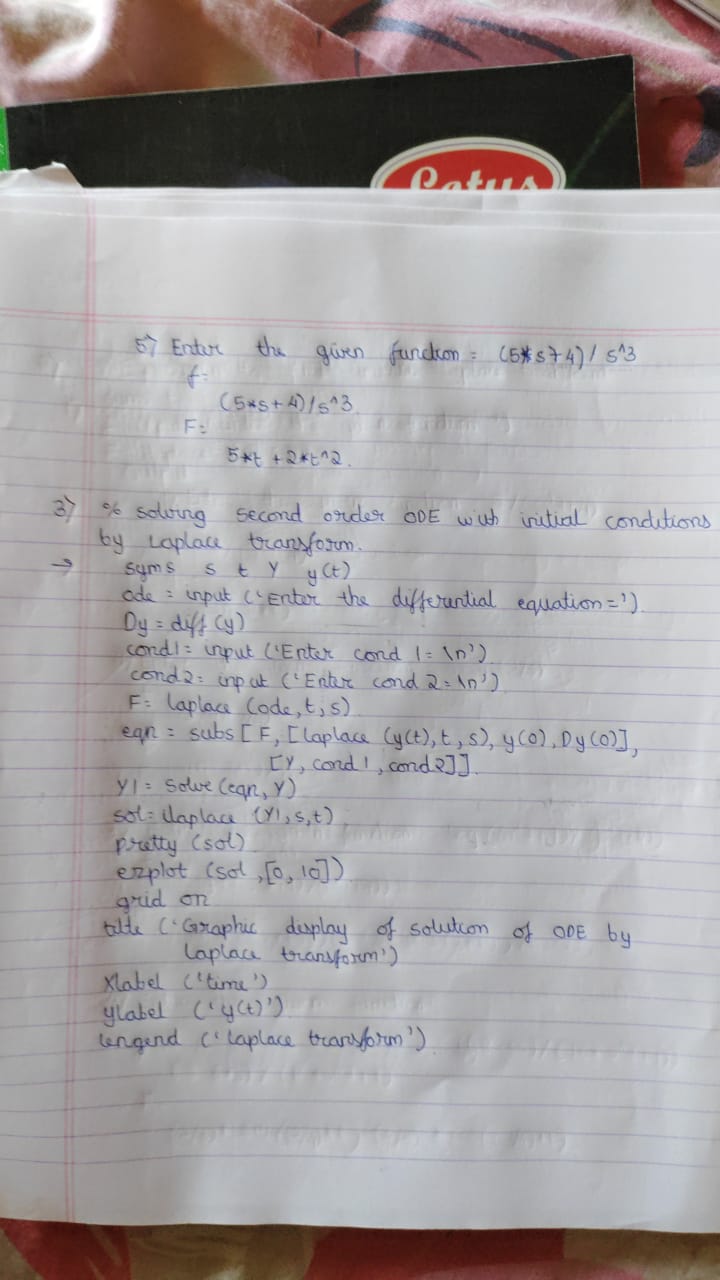 Lotus
5) Enter the given function = (5*s+4)/s^3
f=
(5*s+4)/s^3
F=
5*t+2*t^2.
3) % solving second order ODE with initial conditions
by Laplace transform.
→ syms s t Y y(t)
ode = input ('Enter the differential equation=')
Dy = diff (y)
cond1= input ('Enter cond 1= \n')
cond2= input ('Enter cond 2=\n')
F= laplace (ode,t,s)
eqn = subs [F, [laplace (y(t), t, s), y(0), Dy(0)],
[Y, cond1, cond2]].
Y1= solve (eqn, Y)
sol= ilaplace (Y1,s,t)
pretty (sol)
ezplot (sol,[0,10])
grid on
title ('Graphic display of solution of ODE by
Laplace transform')
xlabel ('time')
ylabel ('y(t)')
lengend ('laplace transform')